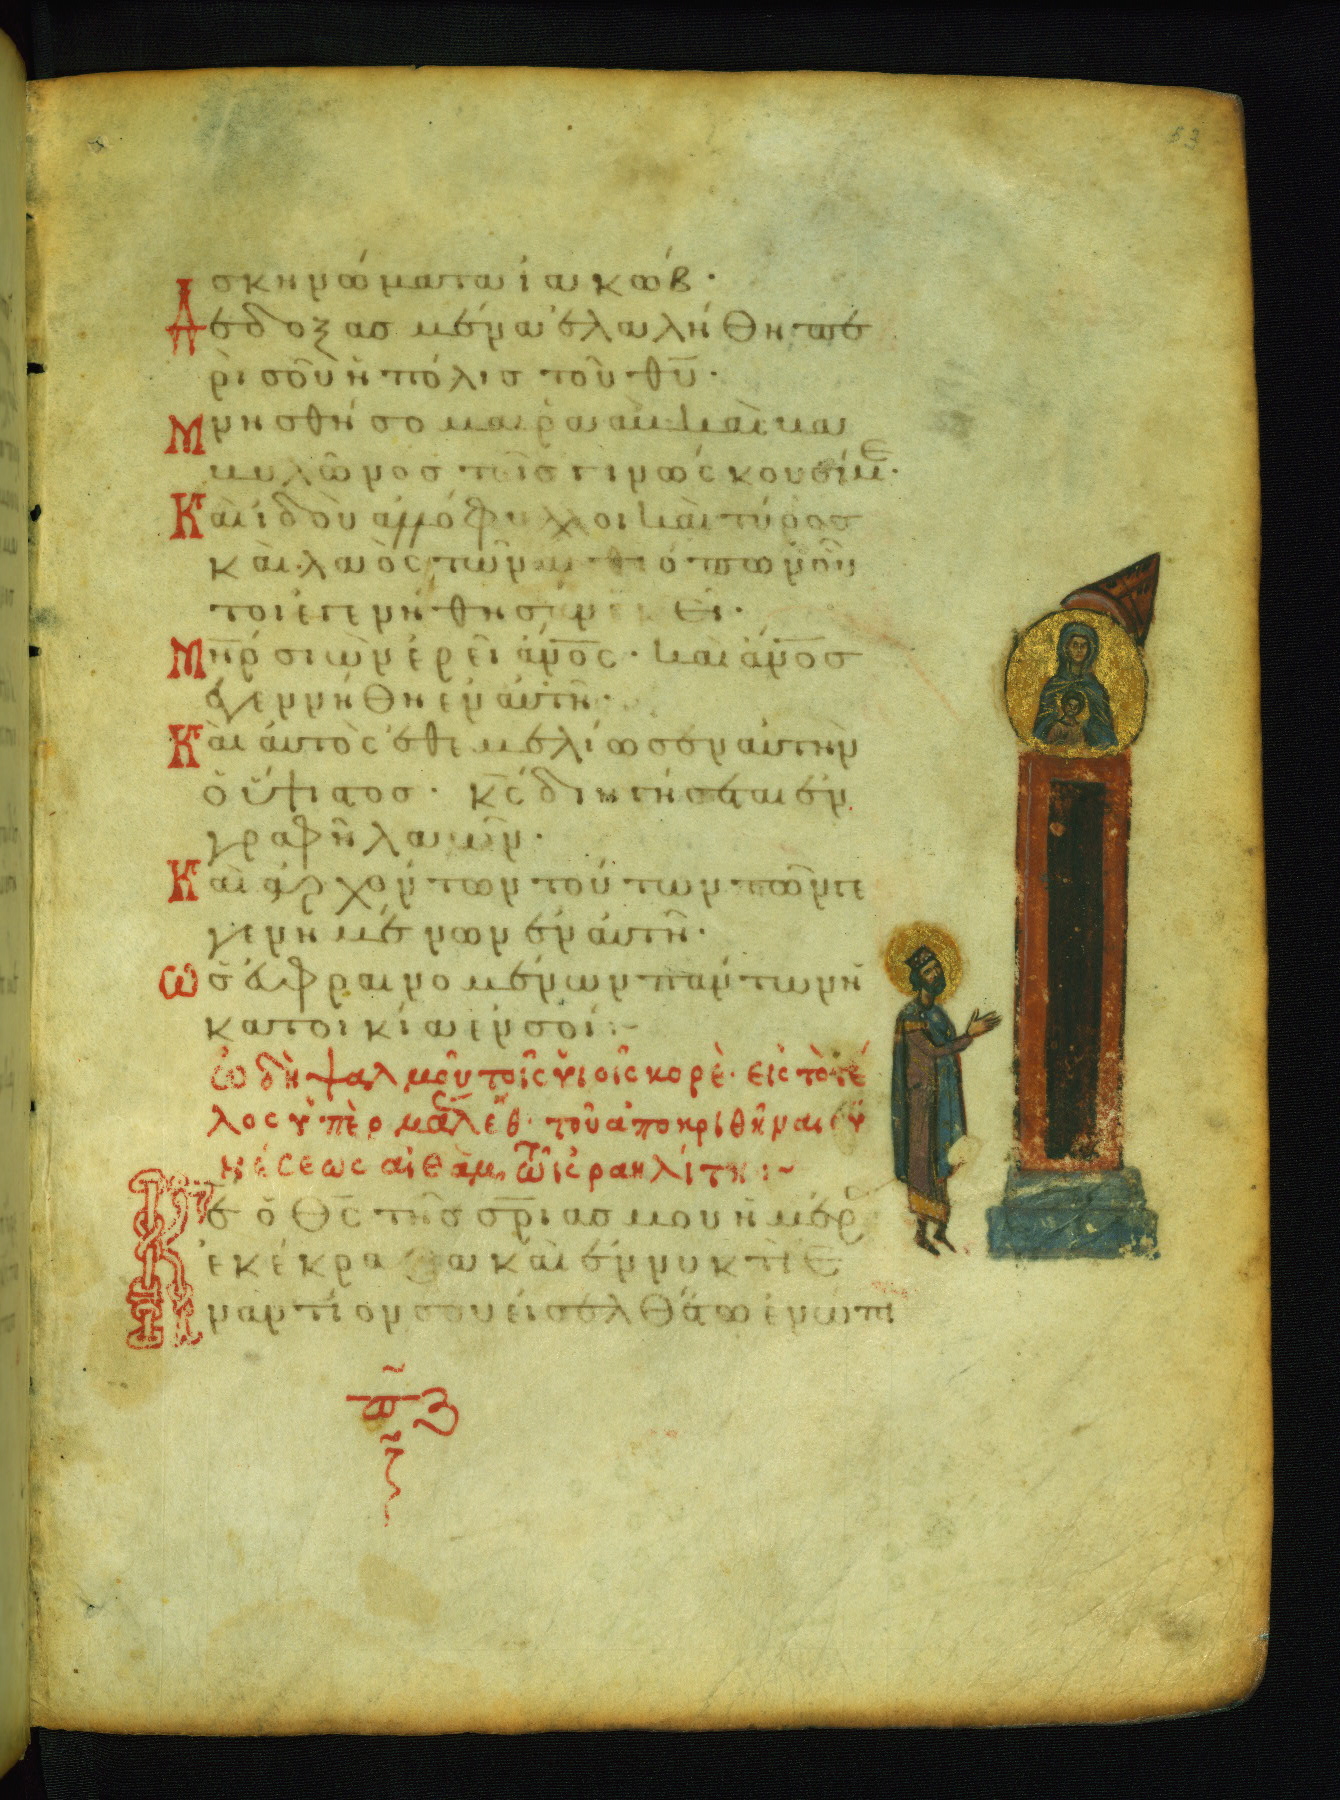 53
σκηνώματα ἰακώβ·
Δεδοξασμένα ἐλαλήθη πε
ρὶ σοῦ ἡ πόλισ τοῦ θ̅υ̅·
Μνησθήσομαι ῥαὰβ καὶ
βαβυλῶνοσ τοῖσ γινώσκουσίμε·
Καὶ ἰδοὺ ἀλλόφυλοι καὶ τύροσ
καὶ λαὸς τῶν αἰθιόπων οὗ
τοι ἐγενήθησαν ἐκεῖ·
Μ̅η̅ρ̅ σιὼν ἐρεῖ ἄν̅ο̅ς̅· καὶ ἄν̅ο̅σ̅
ἐγεννήθη ἐν αὐτῆ·
Καὶ αὐτὸς ἐθεμελίωσεν αὐτὴν
ὁ ὕψιστοσ· κ̅ς̅ διηγήσεται ἐν
γραφῆ λαῶν·
Καὶ ἀρχόντων τούτων τῶν γε
γενημένων ἐν αὐτῆ·
Ὡσ εὐφραινομένων πάντων ἡ
κατοικία ἐν σοί:~
ὠδὴ ψαλμοῦ τοῖς υἱοῖς κορέ· εἰς τὸ τέ
λος ὑπὲρ μαελέθ· τοῦ ἀποκριθῆναι συ
νέσεως αἰθὰμ τῶ ἰσραηλίτη:~
Κ̅ε̅ ὁ θ̅ς̅ τῆσ σ̅ρ̅ι̅ασ μου ἡμέρ
ἐκέκραξα καὶ ἐν νυκτὶ ἐ
ναντίον σου εἰσελθάτω ἐνώπι
π̅ζ̅
ζ